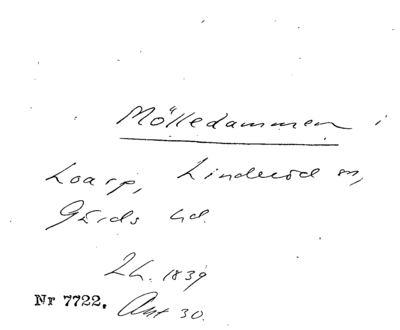 Mölledammen i
Loarp, Linderöd sn,
Gärds hd.
Lh. 1839
Nr 7722. Ant 30.